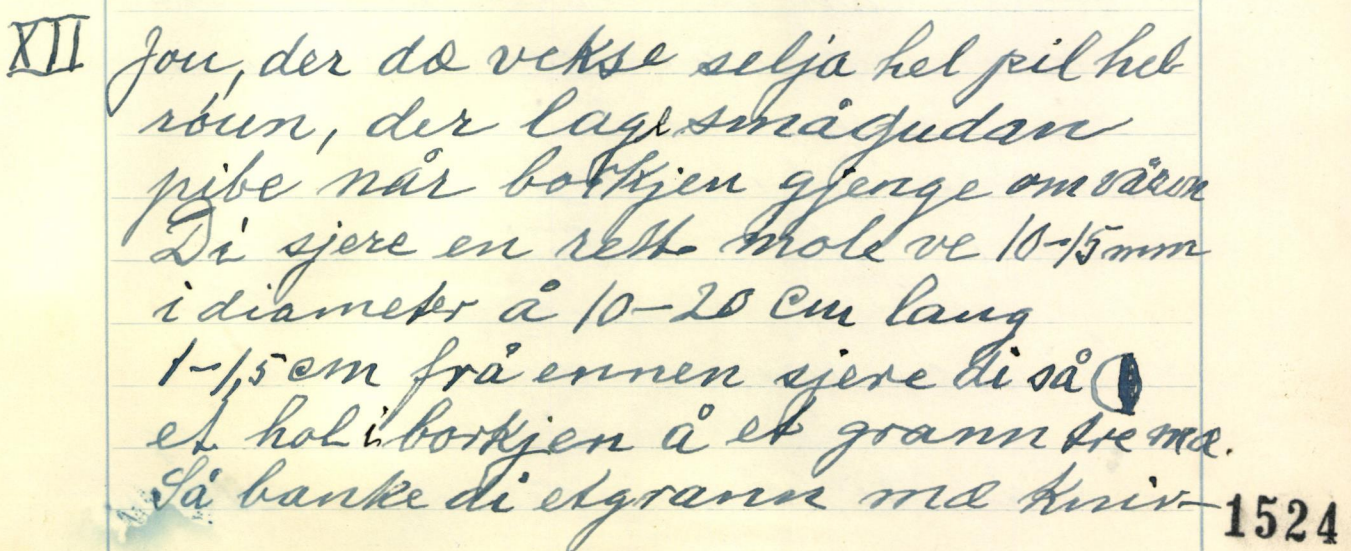 XII Jou, der dæ vekse selja hel pil hel
róun, der lage smågudan
pibe når borkjen gjenge om våren
Di sjere en rett mole ve 10-15 mm
i diameter å 10-20 cm lang
1-1,5 cm frå ennen sjere di så
et hol i borkjen å et grann tre mæ.
Så banke di et grann mæ kniv-
1524